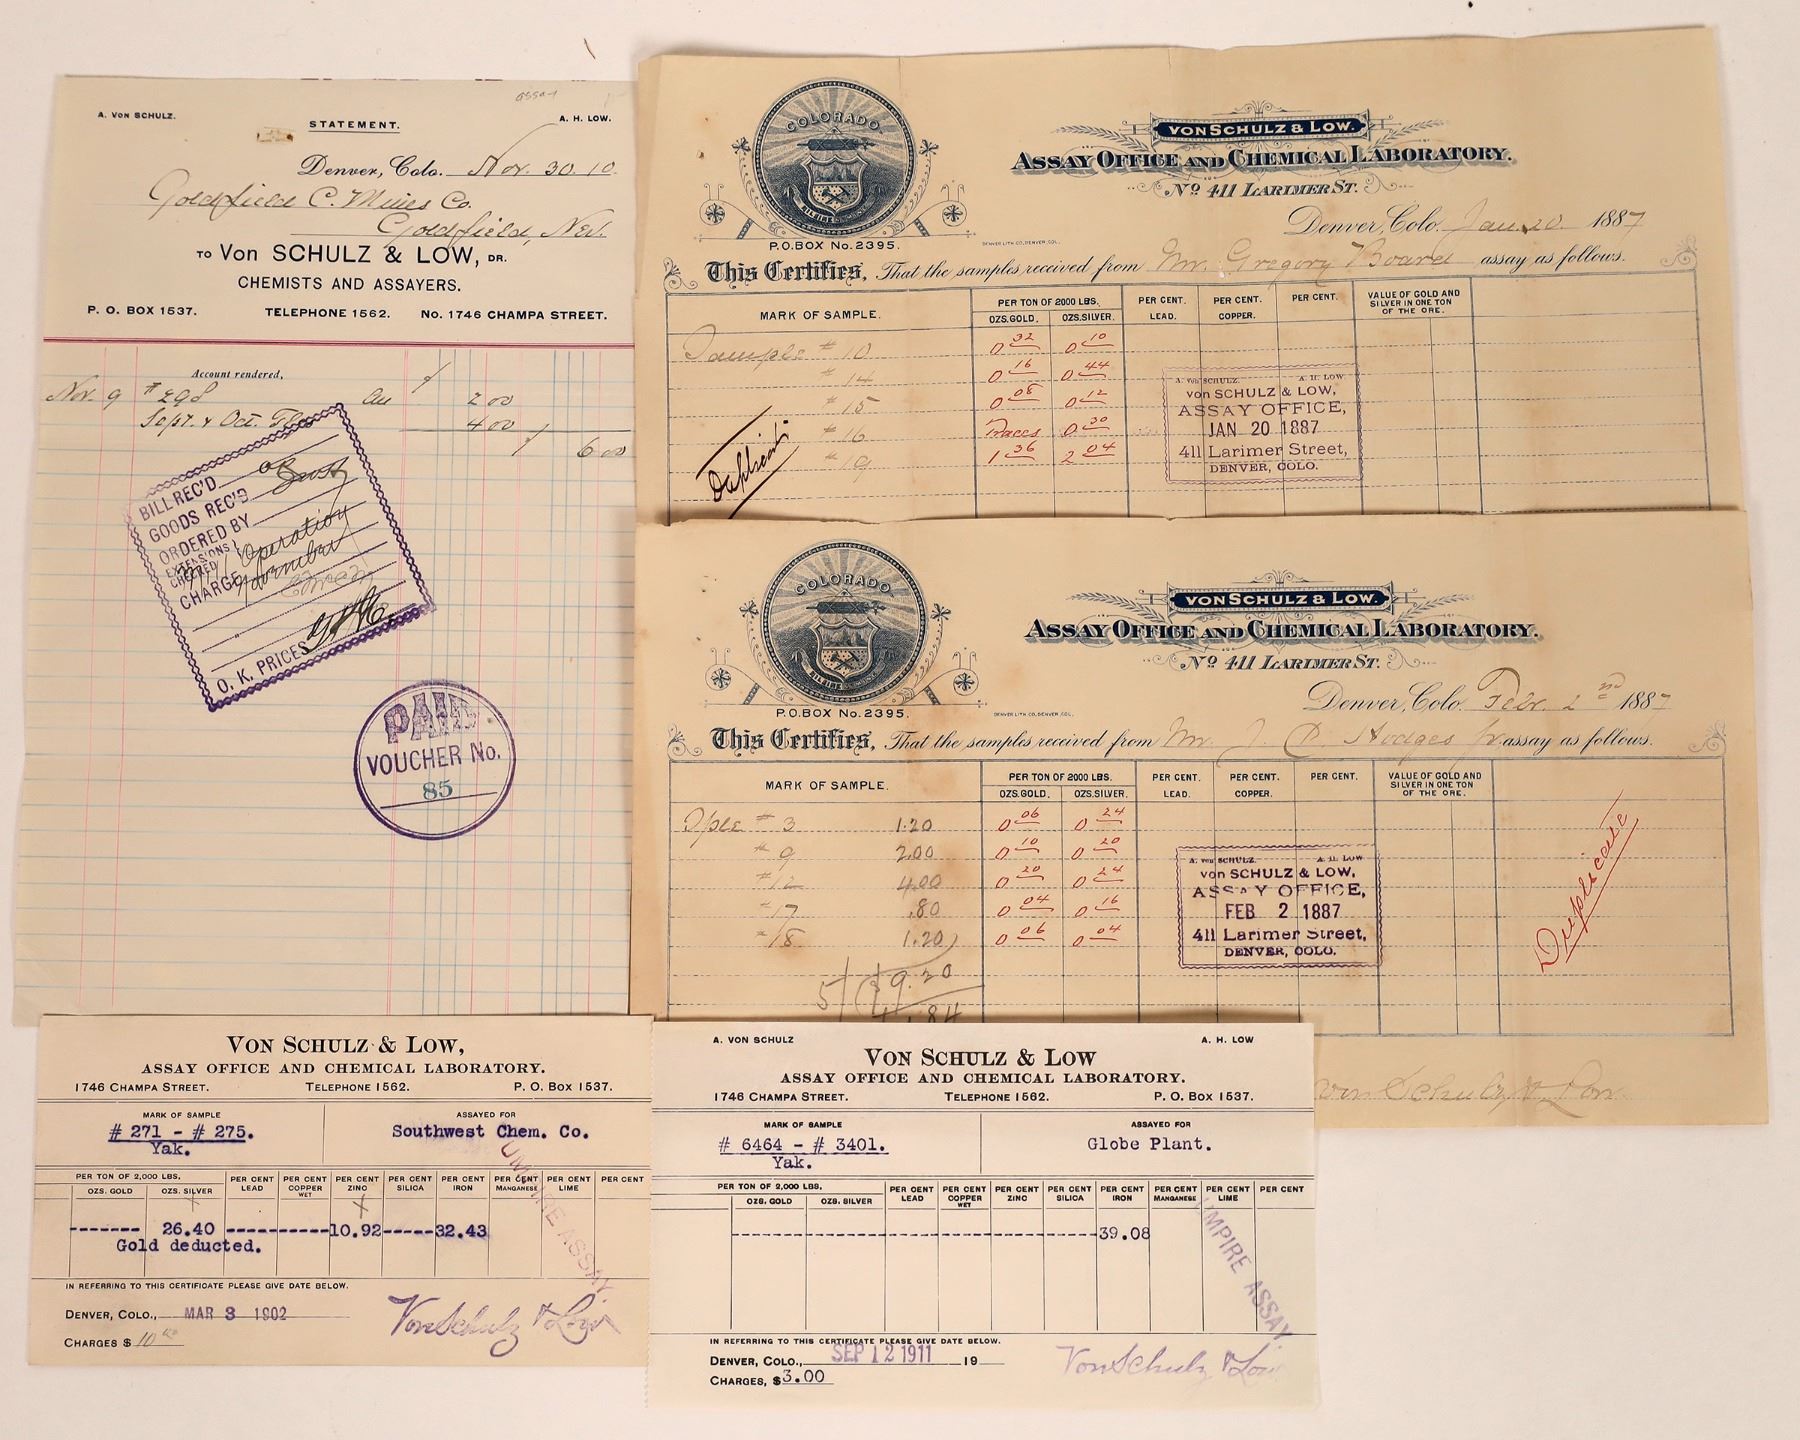 assay
A. VON SCHULZ.
A. H. LOW.
STATEMENT.
Denver, Colo. Nov. 30. 10.
Goldfield C. Mines Co.
Goldfield, Nev.
TO VON SCHULZ & LOW, DR.
CHEMISTS AND ASSAYERS.
P. O. BOX 1537. TELEPHONE 1562. NO. 1746 CHAMPA STREET.
Account rendered,
Nov. 9 # 298 Au 2 00
Sept. & Oct. 4 00
6 00
BILL REC'D
GOODS REC'D
ORDERED BY
EXTENSIONS
CHECKED
CHARGE
Operation
O. K. PRICES
PAID
VOUCHER No.
85
COLORADO
NIL SINE
P.O.BOX No. 2395.
DENVER LITH CO, DENVER, COL.
VON SCHULZ & LOW.
ASSAY OFFICE AND CHEMICAL LABORATORY.
No 411 LARIMER ST.
Denver, Colo. Jan. 20. 1887
This Certifies, That the samples received from Mr. Gregory Board assay as follows.
MARK OF SAMPLE. PER TON OF 2000 LBS. PER CENT. LEAD. PER CENT. COPPER. PER CENT. VALUE OF GOLD AND SILVER IN ONE TON OF THE ORE.
OZS. GOLD. OZS. SILVER.
Sample # 10 0 32 0 10
# 14 0 16 0 44
# 15 0 08 0 12
# 16 Traces 0 30
# 19 1 36 2 04
Duplicate
A. VON SCHULZ. A. H. LOW
VON SCHULZ & LOW,
ASSAY OFFICE,
JAN 20 1887
411 Larimer Street,
DENVER, COLO.
COLORADO
NIL SINE
P.O.BOX No. 2395.
DENVER LITH CO, DENVER, COL.
VON SCHULZ & LOW.
ASSAY OFFICE AND CHEMICAL LABORATORY.
No 411 LARIMER ST.
Denver, Colo. Febr. 2nd 1887
This Certifies, That the samples received from Mr. J. D. Hodges Jr. assay as follows.
MARK OF SAMPLE. PER TON OF 2000 LBS. PER CENT. LEAD. PER CENT. COPPER. PER CENT. VALUE OF GOLD AND SILVER IN ONE TON OF THE ORE.
OZS. GOLD. OZS. SILVER.
Sple # 3 1.20 0 06 0 24
# 9 2.00 0 10 0 20
# 12 4.00 0 20 0 24
# 17 .80 0 04 0 16
# 18 1.20 0 06 0 04
5 9.20
1.84
A. VON SCHULZ. A. H. LOW
VON SCHULZ & LOW,
ASSAY OFFICE,
FEB 2 1887
411 Larimer Street,
DENVER, COLO.
Duplicate
Von Schulz & Low.
VON SCHULZ & LOW,
ASSAY OFFICE AND CHEMICAL LABORATORY.
1746 CHAMPA STREET. TELEPHONE 1562. P. O. BOX 1537.
MARK OF SAMPLE ASSAYED FOR
# 271 - # 275. Southwest Chem. Co.
Yak.
PER TON OF 2,000 LBS. PER CENT LEAD PER CENT COPPER WET PER CENT ZINC PER CENT SILICA PER CENT IRON PER CENT MANGANESE PER CENT LIME PER CENT
OZS. GOLD OZS. SILVER
------- 26.40 ----------10.92-----32.43
Gold deducted.
UMPIRE ASSAY
IN REFERRING TO THIS CERTIFICATE PLEASE GIVE DATE BELOW.
DENVER, COLO., MAR 3 1902
CHARGES $ 10 00
Von Schulz & Low
A. VON SCHULZ A. H. LOW
VON SCHULZ & LOW
ASSAY OFFICE AND CHEMICAL LABORATORY.
1746 CHAMPA STREET. TELEPHONE 1562. P. O. BOX 1537.
MARK OF SAMPLE ASSAYED FOR
# 6464 - # 3401. Globe Plant.
Yak.
PER TON OF 2,000 LBS. PER CENT LEAD PER CENT COPPER WET PER CENT ZINC PER CENT SILICA PER CENT IRON PER CENT MANGANESE PER CENT LIME PER CENT
OZS. GOLD OZS. SILVER
39.08
UMPIRE ASSAY
IN REFERRING TO THIS CERTIFICATE PLEASE GIVE DATE BELOW.
DENVER, COLO., SEP 12 1911 19
CHARGES, $3.00
Von Schulz & Low